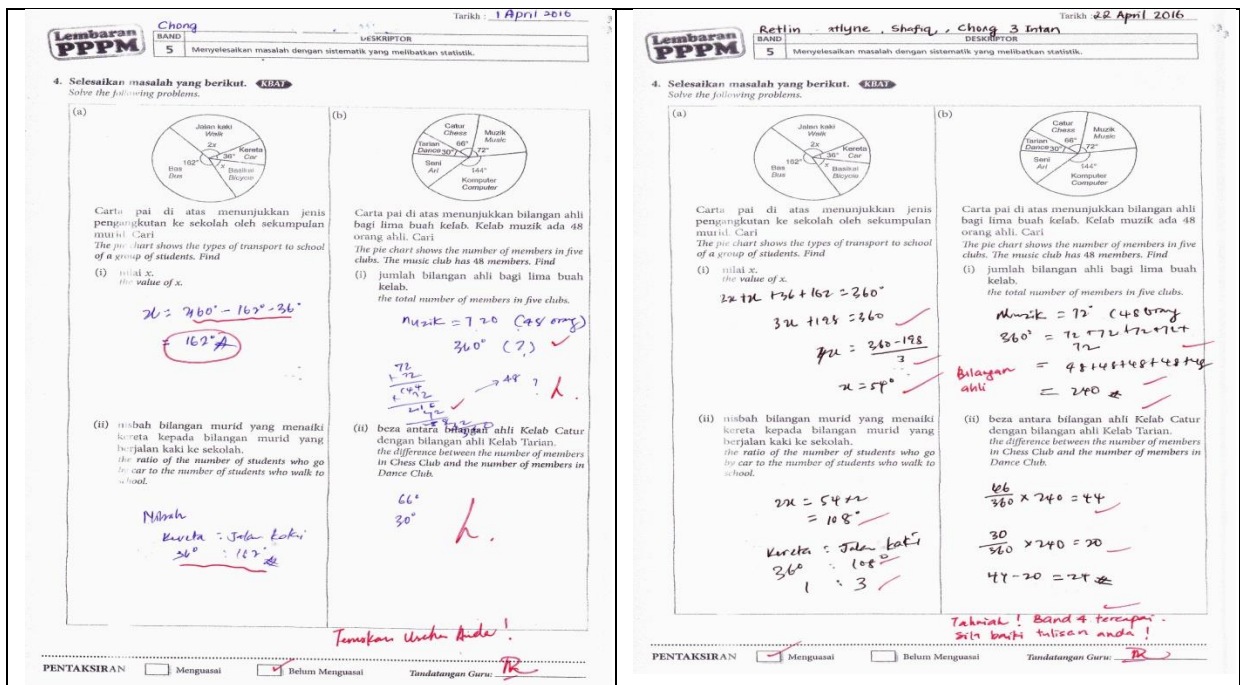 Tarikh : 1 April 2016
Chong
Lembaran
PPPM
BAND
DESKRIPTOR
5
Menyelesaikan masalah dengan sistematik yang melibatkan statistik.
4. Selesaikan masalah yang berikut. KBAT
Solve the following problems.
(a)
Jalan kaki
Walk
2x
Kereta
Car
36°
x
Basikal
Bicycle
162°
Bas
Bus
Carta pai di atas menunjukkan jenis
pengangkutan ke sekolah oleh sekumpulan
murid. Cari
The pie chart shows the types of transport to school
of a group of students. Find
(i) nilai x.
the value of x.
x = 360° - 162° - 36°
= 162°
(ii) nisbah bilangan murid yang menaiki
kereta kepada bilangan murid yang
berjalan kaki ke sekolah.
the ratio of the number of students who go
by car to the number of students who walk to
school.
Nisbah
Kereta : Jalan kaki
36° : 162°
(b)
Catur
Chess
66°
Muzik
Music
72°
Tarian
Dance
30°
Seni
Art
144°
Komputer
Computer
Carta pai di atas menunjukkan bilangan ahli
bagi lima buah kelab. Kelab muzik ada 48
orang ahli. Cari
The pie chart shows the number of members in five
clubs. The music club has 48 members. Find
(i) jumlah bilangan ahli bagi lima buah
kelab.
the total number of members in five clubs.
Muzik = 720 (48 orang)
360° (?)
72
+ 72
144
+ 72
216
72
48 ?
(ii) beza antara bilangan ahli Kelab Catur
dengan bilangan ahli Kelab Tarian.
the difference between the number of members
in Chess Club and the number of members in
Dance Club.
66°
30°
Teruskan Usaha Anda !
PENTAKSIRAN
Menguasai
Belum Menguasai
Tandatangan Guru:
Tarikh : 22 April 2016
Retlin atlyne , Shafiq , Chong 3 Intan
Lembaran
PPPM
BAND
DESKRIPTOR
5
Menyelesaikan masalah dengan sistematik yang melibatkan statistik.
4. Selesaikan masalah yang berikut. KBAT
Solve the following problems.
(a)
Jalan kaki
Walk
2x
Kereta
Car
36°
x
Basikal
Bicycle
162°
Bas
Bus
Carta pai di atas menunjukkan jenis
pengangkutan ke sekolah oleh sekumpulan
murid. Cari
The pie chart shows the types of transport to school
of a group of students. Find
(i) nilai x.
the value of x.
2x + x + 36 + 162 = 360°
3x + 198 = 360
x = 360 - 198
3
x = 54°
(ii) nisbah bilangan murid yang menaiki
kereta kepada bilangan murid yang
berjalan kaki ke sekolah.
the ratio of the number of students who go
by car to the number of students who walk to
school.
2x = 54 × 2
= 108°
Kereta : Jalan kaki
36° : 108°
1 : 3
(b)
Catur
Chess
66°
Muzik
Music
72°
Tarian
Dance
30°
Seni
Art
144°
Komputer
Computer
Carta pai di atas menunjukkan bilangan ahli
bagi lima buah kelab. Kelab muzik ada 48
orang ahli. Cari
The pie chart shows the number of members in five
clubs. The music club has 48 members. Find
(i) jumlah bilangan ahli bagi lima buah
kelab.
the total number of members in five clubs.
Muzik = 72° (48 orang
360° = 72 + 72 + 72 + 72 +
72
Bilangan
ahli
= 48 + 48 + 48 + 48 + 48
= 240
(ii) beza antara bilangan ahli Kelab Catur
dengan bilangan ahli Kelab Tarian.
the difference between the number of members
in Chess Club and the number of members in
Dance Club.
66
360 × 240 = 44
30
360 × 240 = 20
44 - 20 = 24
Tahniah ! Band 4 tercapai.
Sila baiki tulisan anda !
PENTAKSIRAN
Menguasai
Belum Menguasai
Tandatangan Guru: